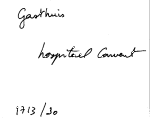 Gasthuis
hospitaal Convent
1713/20